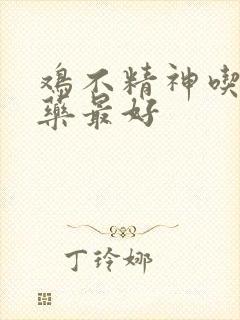 鸡不精神喫
藥最好
丁玲娜